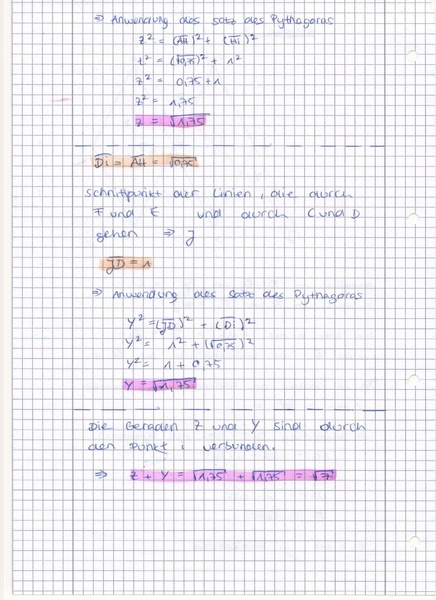 ⇒ Anwendung des Satz des Pythagoras
z² = (AH)² + (Hi)²
z² = (√0,75)² + 1²
z² = 0,75 + 1
z² = 1,75
z = √1,75
Di = AH = √0,75
Schnittpunkt der Linien, die durch
F und E und durch C und D
gehen ⇒ J
JD = 1
⇒ Anwendung des Satz des Pythagoras
y² = (JD)² + (Di)²
y² = 1² + (√0,75)²
y² = 1 + 0,75
y = √1,75
Die Geraden z und y sind durch
den Punkt i verbunden.
⇒ z + y = √1,75 + √1,75 = √7